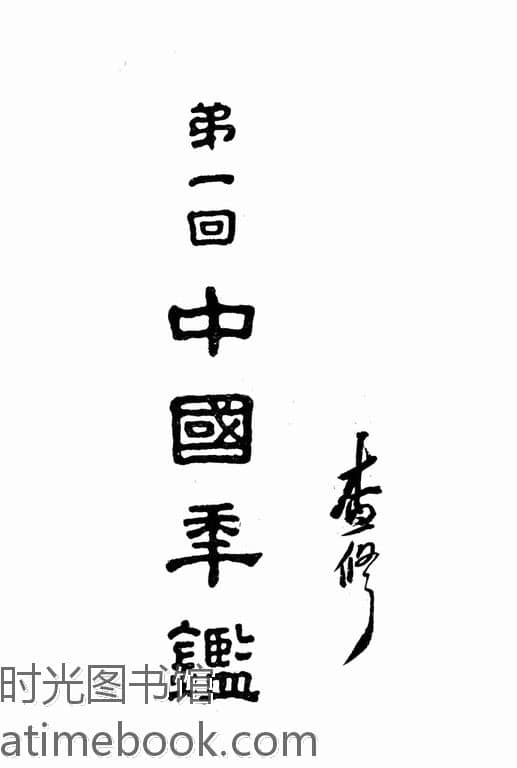 查修
弟一回中國年鑑
时光图书馆
atimebook.com